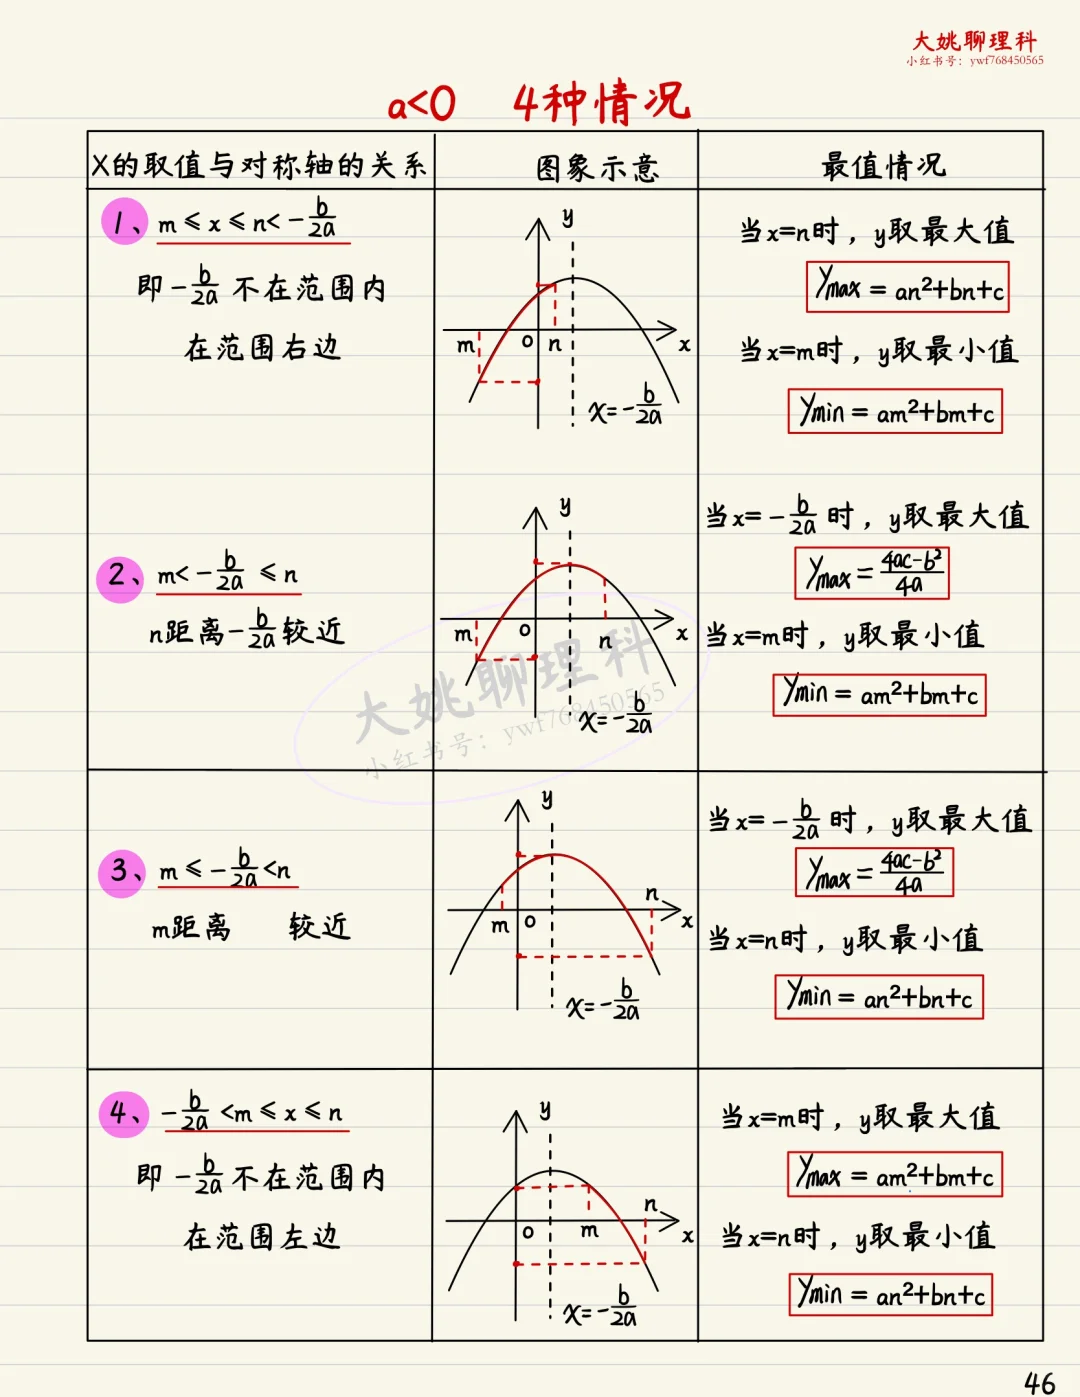 大姚聊理科
小红书号：ywf768450565
a<0 4种情况
X的取值与对称轴的关系
图象示意
最值情况
1、m ≤ x ≤ n< -b/2a
即 -b/2a 不在范围内
在范围右边
y
m
o
n
x
x=-b/2a
当x=n时，y取最大值
ymax = an²+bn+c
当x=m时，y取最小值
ymin = am²+bm+c
2、m< -b/2a ≤ n
n距离-b/2a较近
y
m
o
n
x
x=-b/2a
当x= -b/2a 时，y取最大值
ymax = 4ac-b²/4a
当x=m时，y取最小值
ymin = am²+bm+c
大姚聊理科
小红书号：ywf768450565
3、m ≤ -b/2a <n
m距离 较近
y
m
o
n
x
x=-b/2a
当x= -b/2a 时，y取最大值
ymax = 4ac-b²/4a
当x=n时，y取最小值
ymin = an²+bn+c
4、-b/2a <m ≤ x ≤ n
即 -b/2a 不在范围内
在范围左边
y
o
m
n
x
x=-b/2a
当x=m时，y取最大值
ymax = am²+bm+c
当x=n时，y取最小值
ymin = an²+bn+c
46